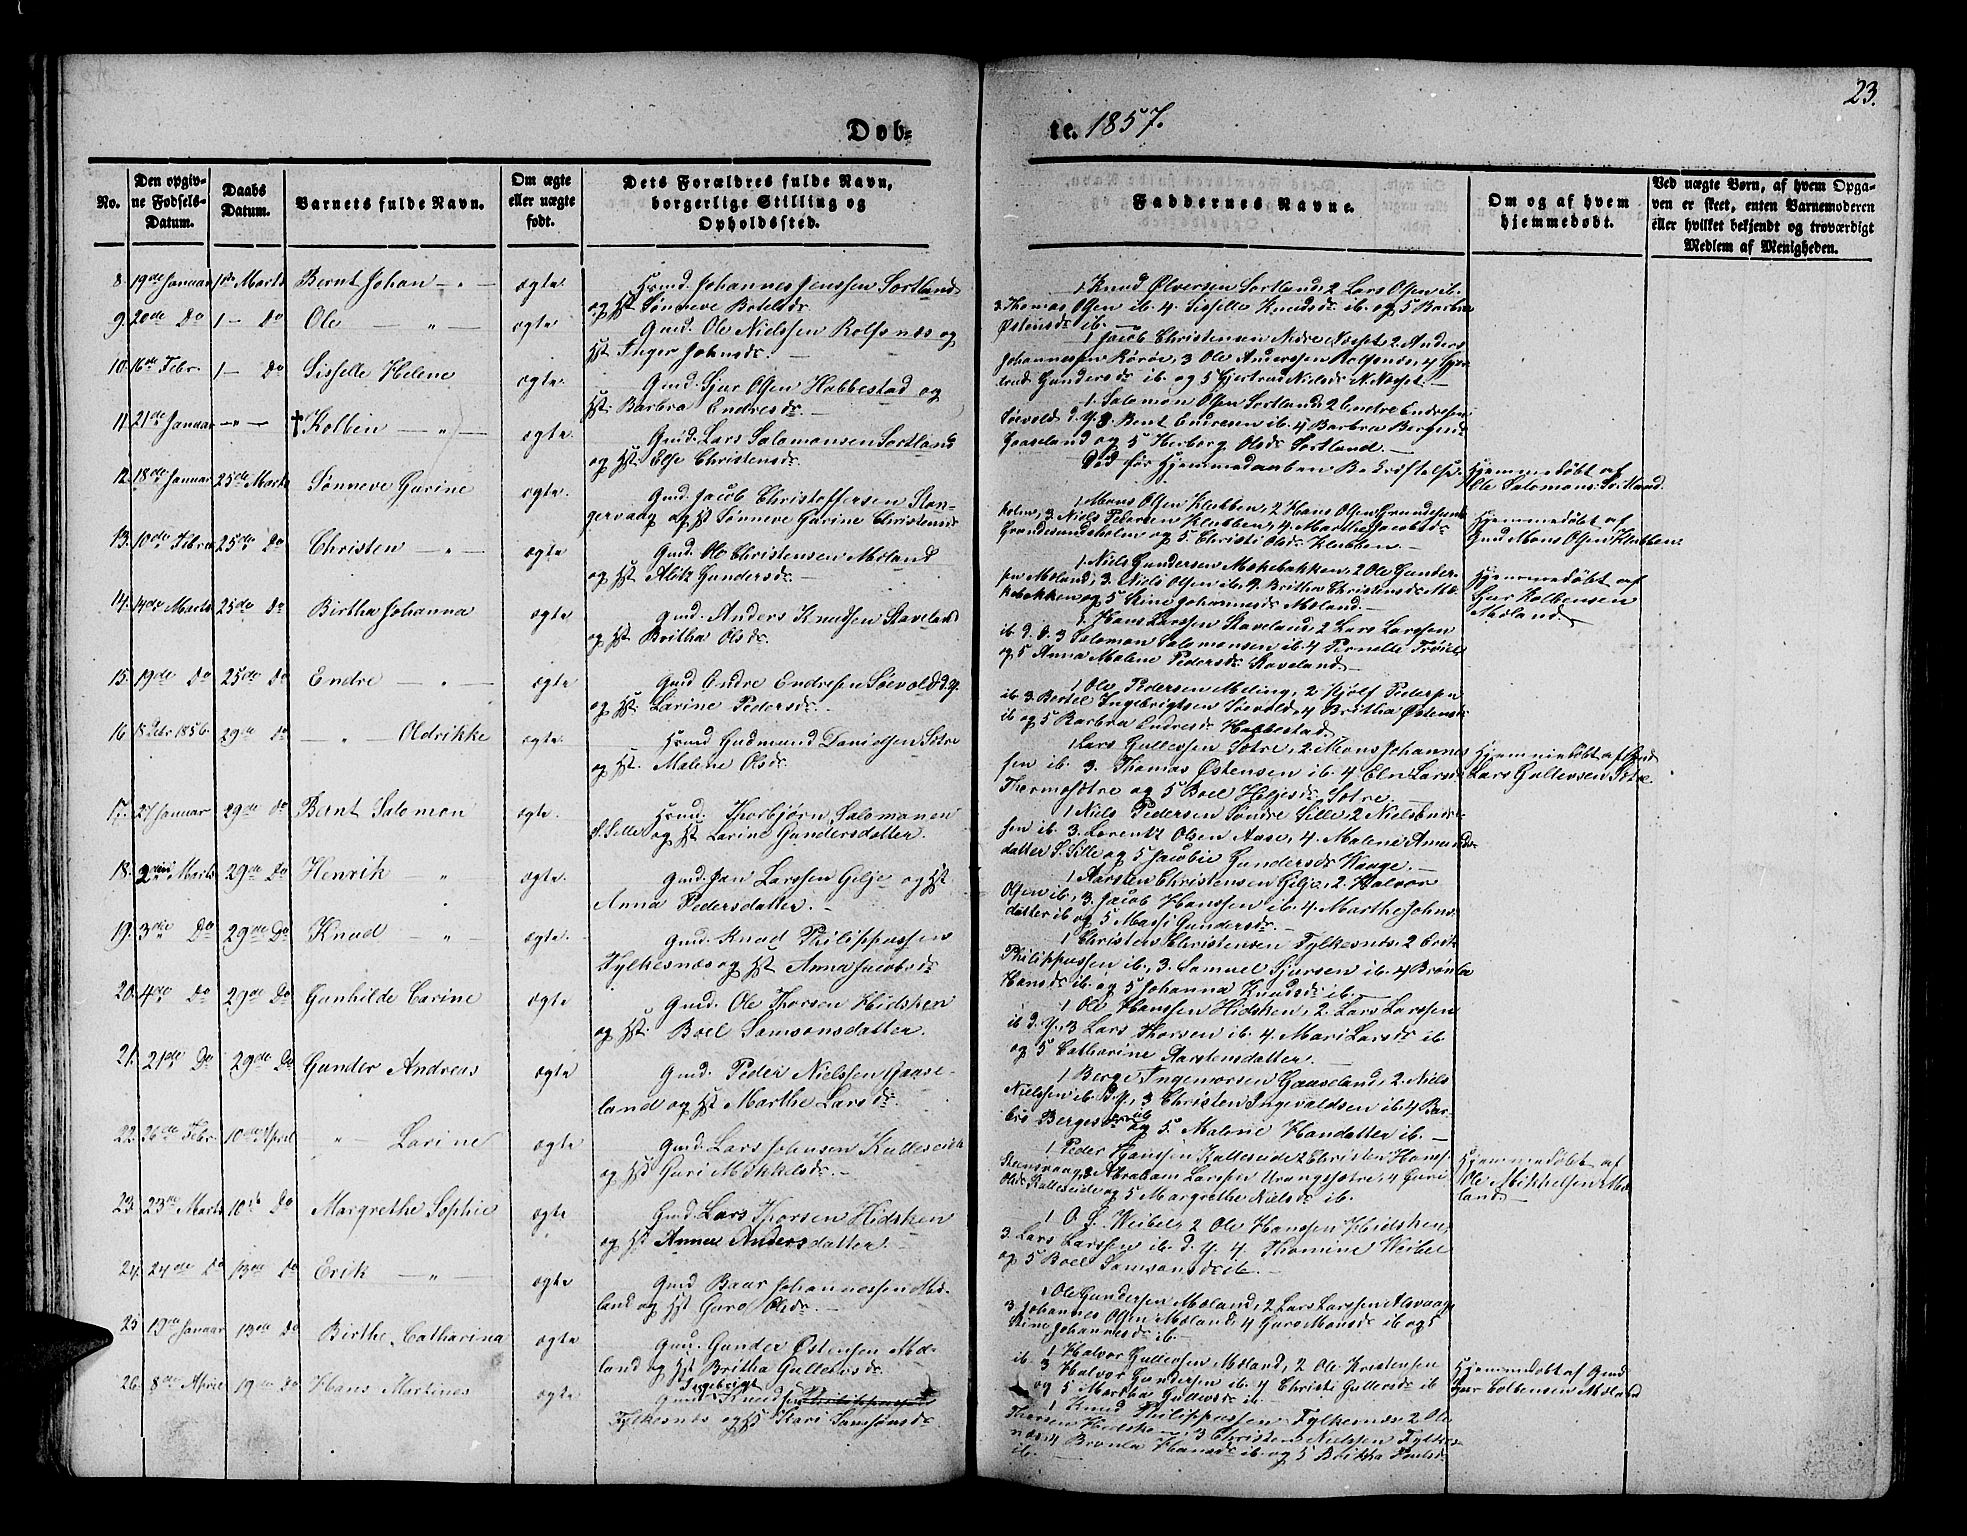 23.
Døb= te. 1857.
No.
Den opgiv-
ne Fødsels-
Datum.
Daabs
Datum.
Barnets fulde Navn.
Om ægte
eller uægte
født.
Dets Forældres fulde Navn,
borgerlige Stilling og
Opholdssted.
Faddernes Navne.
Om og af hvem
hjemmedøbt.
Ved uægte Børn, af hvem Opga-
ven er skeet, enten Barnemoderen
eller hvilket bekjendt og troværdigt
Medlem af Menigheden.
8. 19de Januar 1ste Marts Bernt Johan — " — ægte
Hmd. Johannes Jenssen Sortland
og Hst. Sønneve Botelsdr.
1 Knud Ølversen Sortland, 2 Lars Olsen ib.
3 Thomas Olsen ib. 4. Sisselle Knudsdr ib. og 5 Barbra
Østensdr ib. —
9. 20de Do 1 — Do Ole — " — ægte.
Gmd. Ole Nielssen Rolfsnæs og
Hst. Inger Johnsdr. —
1 Jacob Christensen Nedre Næsset, 2 Anders
Johannessen Rørøe, 3 Ole Anderssen Rolfsnæs, 4
Gundersdr ib. og 5 Gjertrud Nielsdr N. Næsset. —
10. 16de Febr. 1 — Do Sisselle Helene ægte.
Gmd. Sjur Olsen Habbestad og
Hst. Barbra Endresdr. —
1. Salomon Olsen Sortland, 2 Endre Endresen
Søevold d. Y. 3 Bent Endresen ib. 4 Barbra
Gaaseland og 5 Herborg Olsdr Sortland.
11. 21de Januar — " — † Kolben — " — ægte.
Gmd. Lars Salomonsen Sortland
og Hst. Else Christensdr.
Død før Hjemmedaabens Bekræftelse.
Hjemmedøbt af
Ole Salomons.
12. 18de Januar 25de Marts Sønneve Gurine ægte.
Gmd. Jacob Christoffersen Stan-
gervaag og Hst Sønneve Gurine Christensdr
1. Mons Olsen Klubben, 2 Hans Olsen
holm, 3 Niels Pedersen Klubben, 4. Marthe Jacobsdr
og 5. Christi Olsdr Klubben. —
Hjemmedøbt af
Gmd Mons Olsen Klubben.
13. 10de Febr. 25de Do Christen — " — ægte
Gmd. Ole Christensen Møland
og Hst. Alitz Gundersdr. —
1 Niels Gundersen Mækebakken, 2 Ole Gunder-
sen Møland, 3. Niels Olsen ib. 4. Britha Christensdr Mæ-
kebakken og 5 Stine Johannesdr Møland. —
Hjemmedøbt af
Sjur Kolbensen
Mæland.
14. 14de Marts 25de Do Birtha Johanna ægte
Gmd. Anders Knudsen Staveland
og Hst. Britha Olsdr.
1. Hans Larssen Staveland, 2 Lars Larssen
ib. d. æ. 3 Salomon Salomonsen ib. 4 Pernelle
og 5 Anna Malene Pedersdr Staveland. —
15. 19de Do 25de Do Endre — " — ægte
Gmd Endre Endresen Søevold d. y.
og Hst. Larine Pedersdr. —
1 Ole Pedersen Meling, 2 Pedersen
ib. 3. Bertel Ingebrigtsen Søevold, 4 Britha Østensdr
ib og 5 Barbra Endresdr Habbestad.
16. 1856. 29de Do — " — Oldrikke ægte.
Hmd Gudmund Danielsen Sotre
og Hst. Malene Olsdr.
1 Lars Gullessen Sotre, 2 Mons Johannes-
sen ib. 3. Thomas Østensen ib. 4 Elen Larsdr
og 5 Boel Helgesdr Sotre. —
Hjemmedøbt af Gmd
Lars Gullessen Sotre.
17. 27 Januar 29de Do Bent Salomon ægte.
Hmd. Thorbjørn Salomonsen
S. Sille og Hst Larine Gundersdatter.
1 Niels Pedersen Søndre Sille, 2 Niels
sen ib. 3. Lorentz Olsen Aase, 4. Malene Amunds-
datter S. Sille og 5 Jacobie Gundersdr Waage. —
18. 2den Marts 29de Do Henrik — " ægte.
Gmd. Jan Larssen Gilje og Hst
Anna Pedersdatter. —
1 Aarsten Christensen Gilje, 2. Halvor
Olsen ib, 3. Jacob Hanssen ib. 4. Marthe Johns-
datter ib og 5 Gundersdr. —
19. 3die Do 29de Do Knud — " — ægte.
Gmd. Knud Philippussen
Fylkesnæs og Hst Anna Jacobsdr
1 Christen Christensen Fylkesnæs, 2 Erik
Philippussen ib., 3. Samuel Sjursen ib. 4 Brønla
Hansdr ib. og 5 Johanna Knudsdr ib. —
20. 4de Do 29de Do Gunhilde Carine ægte
Gmd. Ole Thorsen Hidsken
og Hst. Boel Samsonsdatter.
1 Ole Hanssen Hidsken, 2. Lars Larssen
ib d. Y., 3 Lars Thorsen ib. 4. Mari Larsdr ib.
og 5 Catharine Aarstensdatter. —
21. 21de Do 29de Do Gunder Andreas ægte
Gmd. Peder Nielssen Gaase-
land og Hst Marthe Larsdr.
1 Berge Ingemorsen Gaaseland, 2. Niels
Nielssen ib. d. Y., 3 Christen Ingevaldsen ib. 4 Bar-
bro Bergesdr ib og 5. Malene Hansdatter ib. —
22. 26de Febr. 10de April — " — Larine ægte
Gmd. Lars Johnsen Kallesvik
og Hst Guri Mikkelsdr. —
1 Peder Hanssen Kalleseide 2 Christen Hanss.
3 Abraham Larsen 4 Guri
Olsdr Kalleseide og 5 Margrethe Nielsdr ib.
Hjemmedøbt af
Ole Mikkelsen Mø-
land
23. 23de Marts 10de Do Margrethe Sophie ægte
Gmd. Lars Thorsen Hidsken
og Hst Anna Andersdatter. —
1 O. J. Weibel, 2 Ole Hanssen Hidsken,
3. Lars Larssen ib. d. Y. 4. Thomine Weibel
og 5 Boel Samsonsdr ib. —
24. 24de Do 13de Do Erik — " — ægte
Gmd Baar Johannessen Mæ-
land og Hst Guro Olsdr. —
1 Ole Gundersen Mæland, 2 Lars Larssen Alsvaage
3 Johannes Olsen Mæland, 4 Guro Monsdr ib og 5
Stine Johannesdr ib. —
25. 19de Januar 13de Do Birthe Catharina ægte
Gmd. Gunder Østensen Mæ-
land og Hst Britha Gullevsdr.
1 Halvor Gullessen Mæland, 2 Ole Kristensen
ib 3 Halvor Gundersen ib. 4 Christi Gullersdr ib
og 5 Martha Gullevsdr ib.
Hjemmedøbt af Gmd
Sjur Colbensen Mæland
26. 8de April 19de Do Hans Martines ægte
Gmd. Knud Ingebrigt sen Philippussen
Fylkesnæs og Hst Kari Samsonsdr.
1 Knud Philippussen Fylkesnæs 2 Ole
Thorsen Hidsken, 3 Christen Nielssen Fylkes-
næs, 4 Brønla Hansdr ib og 5 Britha
ib. —